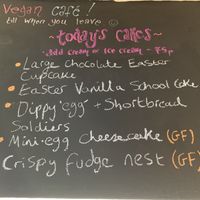 Vegan café!
till when you leave
~ today's cakes ~
• Add cream or ice cream - 75p
• Large Chocolate Easter
Cupcake
• Easter Vanilla School Cake
• Dippy 'egg' + Shortbread
Soldiers
• Mini-egg cheesecake (GF)
Crispy fudge nest (GF)